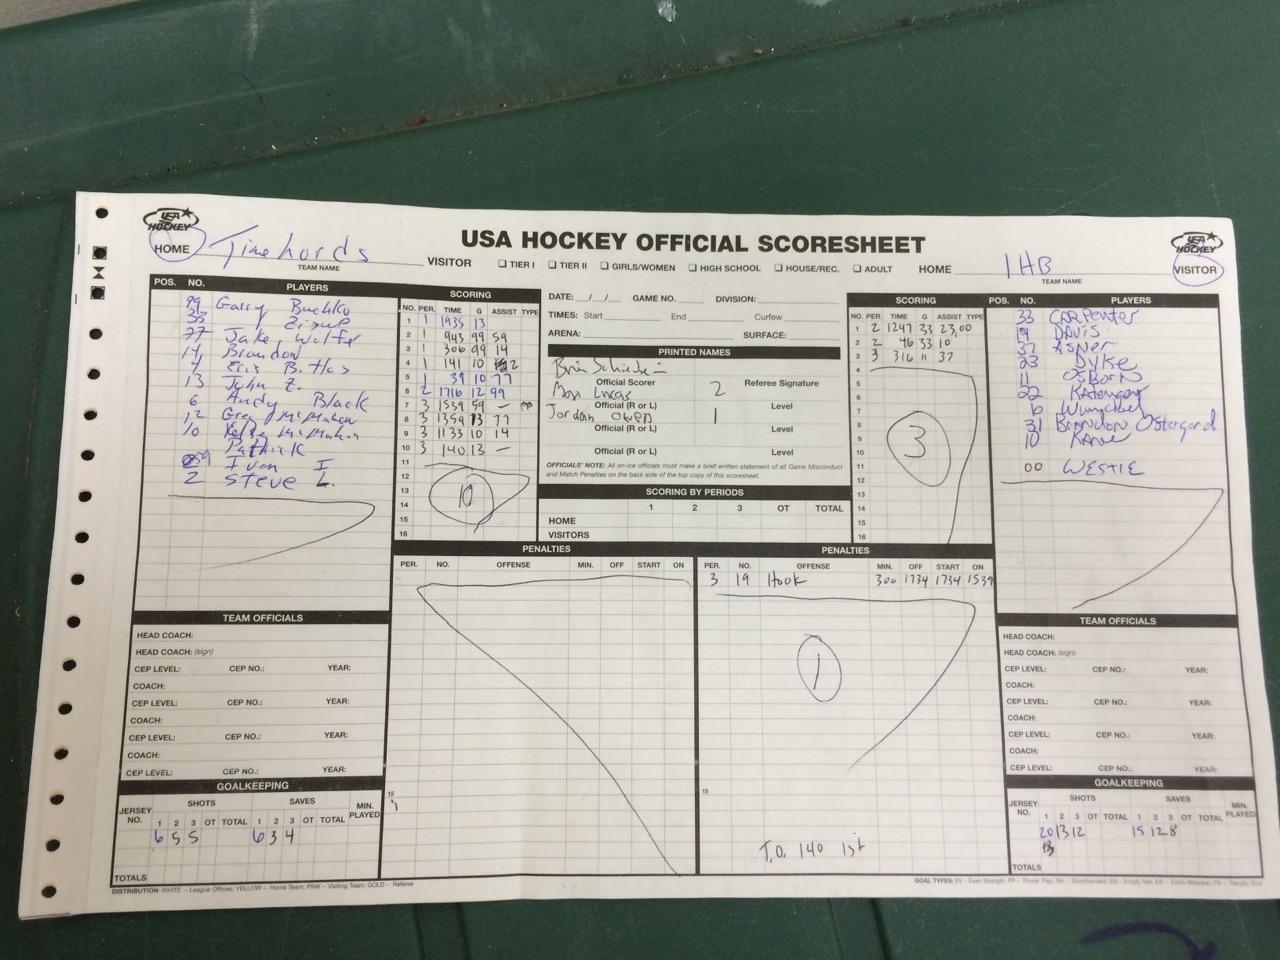 USA HOCKEY
USA HOCKEY
USA HOCKEY OFFICIAL SCORESHEET
HOME
TEAM NAME
VISITOR
TIER I TIER II GIRLS/WOMEN HIGH SCHOOL HOUSE/REC. ADULT
HOME
1HB
TEAM NAME
VISITOR
POS. NO. PLAYERS
99 Garry Buchko
35
77 Jake Wolter
14 Brandon
4 Eris
13 John Z.
6 Andy Black
12 Greg McMahon
10 McMahon
Patrick
59 Ivan I
2 Steve L.
SCORING
NO. PER. TIME G ASSIST TYPE
1 1 1935 13
2 1 943 99 59
3 1 306 99 14
4 1 141 10 2
5 1 39 10 77
6 2 1716 12 99
7 3 1539 59 — PP
8 3 1359 13 77
9 3 1133 10 14
10 3 140 13 —
11
12
13
14
15
16
10
DATE: / / GAME NO. DIVISION:
TIMES: Start End Curfew
ARENA: SURFACE:
PRINTED NAMES
Official Scorer Referee Signature
Lucas 2
Official (R or L) Level
Jordan Owen 1
Official (R or L) Level
Official (R or L) Level
OFFICIALS' NOTE: All on-ice officials must make a brief written statement of all Game Misconduct
and Match Penalties on the back side of the top copy of this scoresheet.
SCORING BY PERIODS
1 2 3 OT TOTAL
HOME
VISITORS
SCORING
NO. PER. TIME G ASSIST TYPE
1 2 1247 33 23,00
2 2 46 33 10
3 3 316 11 37
4
5
6
7
8
9
10
11
12
13
14
15
16
3
POS. NO. PLAYERS
33 CARPENTER
19 DAVIS
37 ASNER
23 DYKE
11 OSBORN
22
6
31 BRANDON Ostergard
10 KANE
00 WESTIE
PENALTIES
PER. NO. OFFENSE MIN. OFF START ON
15
PENALTIES
PER. NO. OFFENSE MIN. OFF START ON
3 19 Hook 300 1734 1734 1539
1
15
T.O. 140 1st
TEAM OFFICIALS
HEAD COACH:
HEAD COACH: (sign)
CEP LEVEL: CEP NO.: YEAR:
COACH:
CEP LEVEL: CEP NO.: YEAR:
COACH:
CEP LEVEL: CEP NO.: YEAR:
COACH:
CEP LEVEL: CEP NO.: YEAR:
GOALKEEPING
JERSEY NO. SHOTS SAVES MIN. PLAYED
1 2 3 OT TOTAL 1 2 3 OT TOTAL
6 5 5 6 3 4
TOTALS
TEAM OFFICIALS
HEAD COACH:
HEAD COACH: (sign)
CEP LEVEL: CEP NO.: YEAR:
COACH:
CEP LEVEL: CEP NO.: YEAR:
COACH:
CEP LEVEL: CEP NO.: YEAR:
COACH:
CEP LEVEL: CEP NO.: YEAR:
GOALKEEPING
JERSEY NO. SHOTS SAVES MIN. PLAYED
1 2 3 OT TOTAL 1 2 3 OT TOTAL
20 13 12 15 12 8
TOTALS
DISTRIBUTION: WHITE – League Offices; YELLOW – Home Team; PINK – Visiting Team; GOLD – Referee
GOAL TYPES: EV - Even Strength, PP - Power Play, SH - Shorthanded, EN - Empty Net, EA - Extra Attacker, PS - Penalty Shot